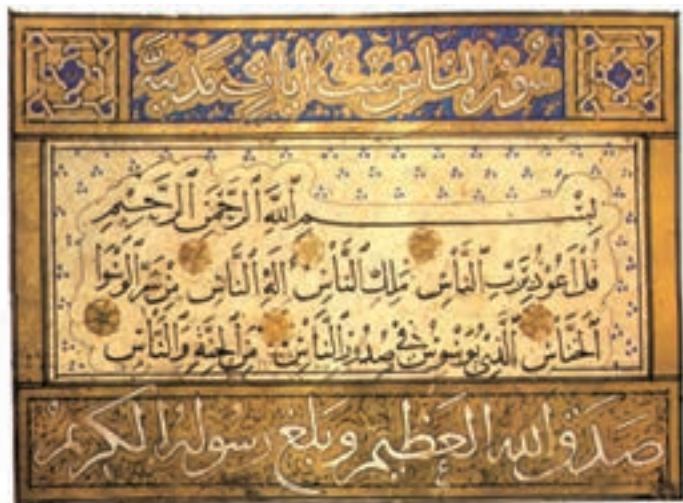 سورة الناس ست ايات مدنية
بِسْمِ ٱللَّهِ ٱلرَّحْمَنِ ٱلرَّحِيمِ
قُلْ أَعُوذُ بِرَبِّ ٱلنَّاسِ مَلِكِ ٱلنَّاسِ إِلَهِ ٱلنَّاسِ مِنْ شَرِّ ٱلْوَسْوَاسِ
ٱلْخَنَّاسِ ٱلَّذِي يُوَسْوِسُ فِي صُدُورِ ٱلنَّاسِ مِنَ ٱلْجِنَّةِ وَٱلنَّاسِ
صَدَقَ ٱللَّهُ ٱلْعَظِيمُ وَبَلَّغَ رَسُولُهُ ٱلْكَرِيمُ